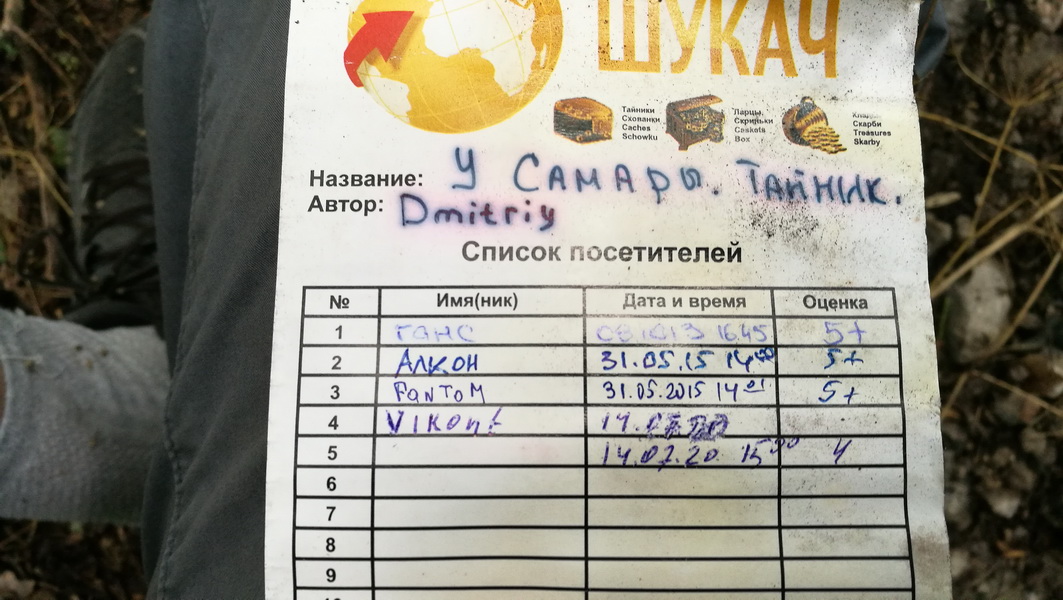 ШУКАЧ
Тайники Ларцы,
Схованки Скриньки Скарби
Caches Caskets Treasures
Schowku Box Skarby
Название: У САМАРЫ. ТАЙНИК.
Автор: Dmitriy
Список посетителей
№ Имя(ник) Дата и время Оценка
1 ГАНС 16.45 5+
2 АЛКОН 31.05.15 14 5+
3 FanToM 31.05.2015 14 01 5+
4 VIKont 14.07.20
5 14.07.20 15 4
6
7
8
9